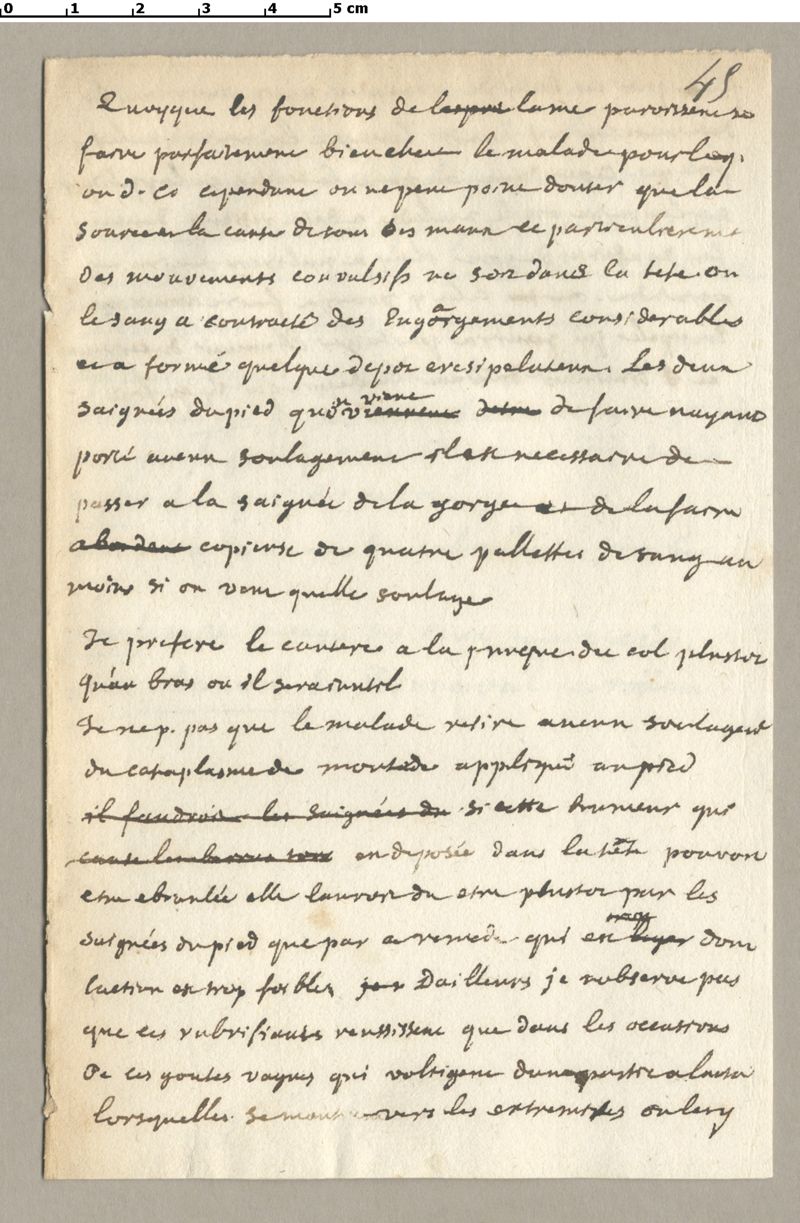 0 1 2 3 4 5 cm
45
Quoyque les fonctions de lespri lame paroissent se
faire parfaitement bien chez le malade pour leq.
on d. co cependant on ne peut point douter que la
source et la cause de tous ses maux et particulierement
des mouvements convulsifs ne soit dans la tete. ou
le sang a contracté des Engorgements considerables
et a formé quelque depot eresipelateux. Les deux
saignées du pied quon vient de faire nayant
porté aucun soulagement il est necessaire de
passer a la saignée de la gorge et de la faire
abondante copieuse de quatre pallettes de sang au
moins si on veut quelle soulage
Je prefere le cautere a la nuque du col plustot
quau bras ou il sera inutil
Je ne p. pas que le malade retire aucun soulagemt
du cataplasme de moutarde appliqué au pied
il faudroit les saignées du si cette humeur qui
cause en deposée dans la tête pouvoit
etre ebranlée elle lauroit du etre plustot par les
saignées du pied que par ce remede qui est trop leger dont
laction est trop foible. Dailleurs je nobserve pas
que ces rubrifiants reussissent que dans les occasions
De ces goutes vagues qui voltigent dune partie a lautre
lorsquelles se montre vers les extremités on les y